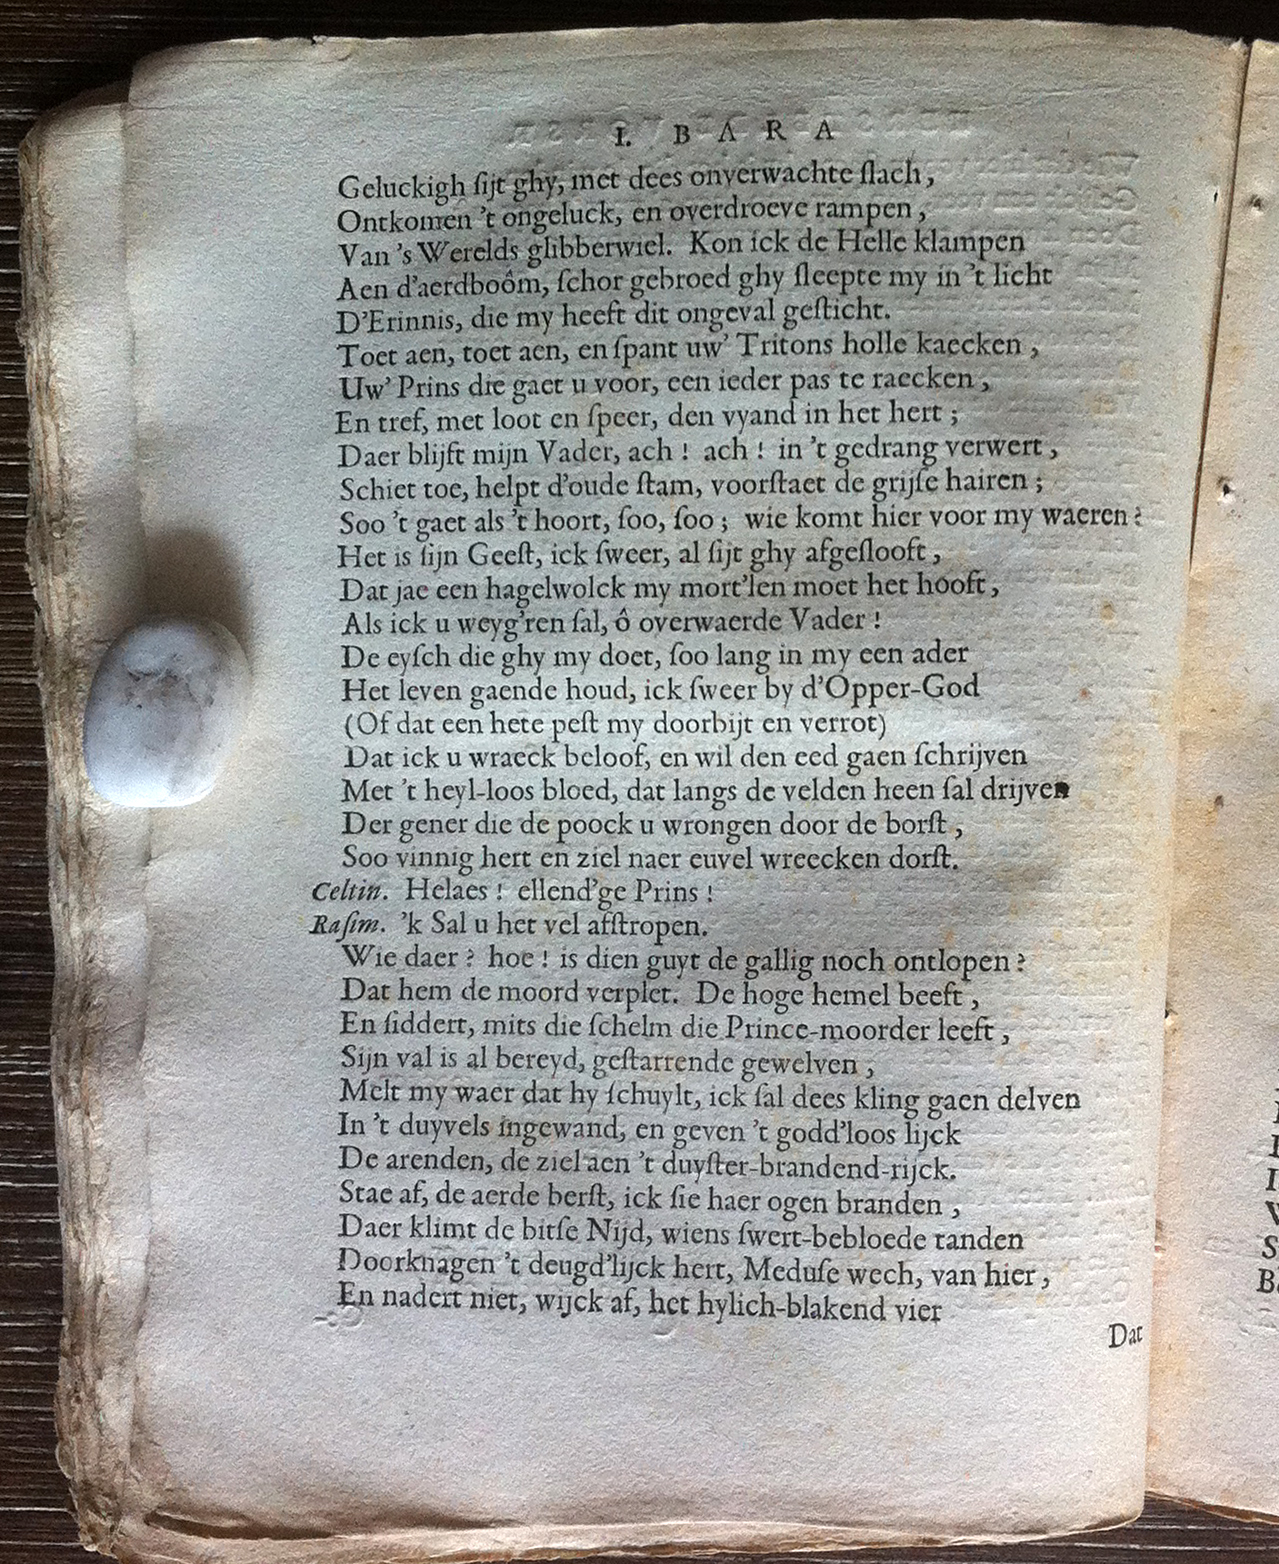 I. BARA
Geluckigh ſijt ghy, met dees onverwachte ſlach,
Ontkomen 't ongeluck, en overdroeve rampen,
Van 's Werelds glibberwiel. Kon ick de Helle klampen
Aen d'aerdboôm, ſchor gebroed ghy ſleepte my in 't licht
D'Erinnis, die my heeft dit ongeval geſticht.
Toet aen, toet aen, en ſpant uw' Tritons holle kaecken,
Uw' Prins die gaet u voor, een ieder pas te raecken,
En tref, met loot en ſpeer, den vyand in het hert;
Daer blijft mijn Vader, ach! ach! in 't gedrang verwert,
Schiet toe, helpt d'oude ſtam, voorſtaet de grijſe hairen;
Soo 't gaet als 't hoort, ſoo, ſoo; wie komt hier voor my waeren?
Het is ſijn Geeſt, ick ſweer, al ſijt ghy afgeſlooft,
Dat jae een hagelwolck my mort'len moet het hooft,
Als ick u weyg'ren ſal, ô overwaerde Vader!
De eyſch die ghy my doet, ſoo lang in my een ader
Het leven gaende houd, ick ſweer by d'Opper-God
(Of dat een hete peſt my doorbijt en verrot)
Dat ick u wraeck beloof, en wil den eed gaen ſchrijven
Met 't heyl-loos bloed, dat langs de velden heen ſal drijven
Der gener die de poock u wrongen door de borſt,
Soo vinnig hert en ziel naer euvel wreecken dorſt.
Celtin. Helaes! ellend'ge Prins!
Raſim. 'k Sal u het vel afſtropen.
Wie daer? hoe! is dien guyt de gallig noch ontlopen?
Dat hem de moord verplet. De hoge hemel beeft,
En ſiddert, mits die ſchelm die Prince-moorder leeft,
Sijn val is al bereyd, geſtarrende gewelven,
Melt my waer dat hy ſchuylt, ick ſal dees kling gaen delven
In 't duyvels ingewand, en geven 't godd'loos lijck
De arenden, de ziel aen 't duyſter-brandend-rijck.
Stae af, de aerde berſt, ick ſie haer ogen branden,
Daer klimt de bitſe Nijd, wiens ſwert-bebloede tanden
Doorknagen 't deugd'lijck hert, Meduſe wech, van hier,
En nadert niet, wijck af, het hylich-blakend vier
Dat